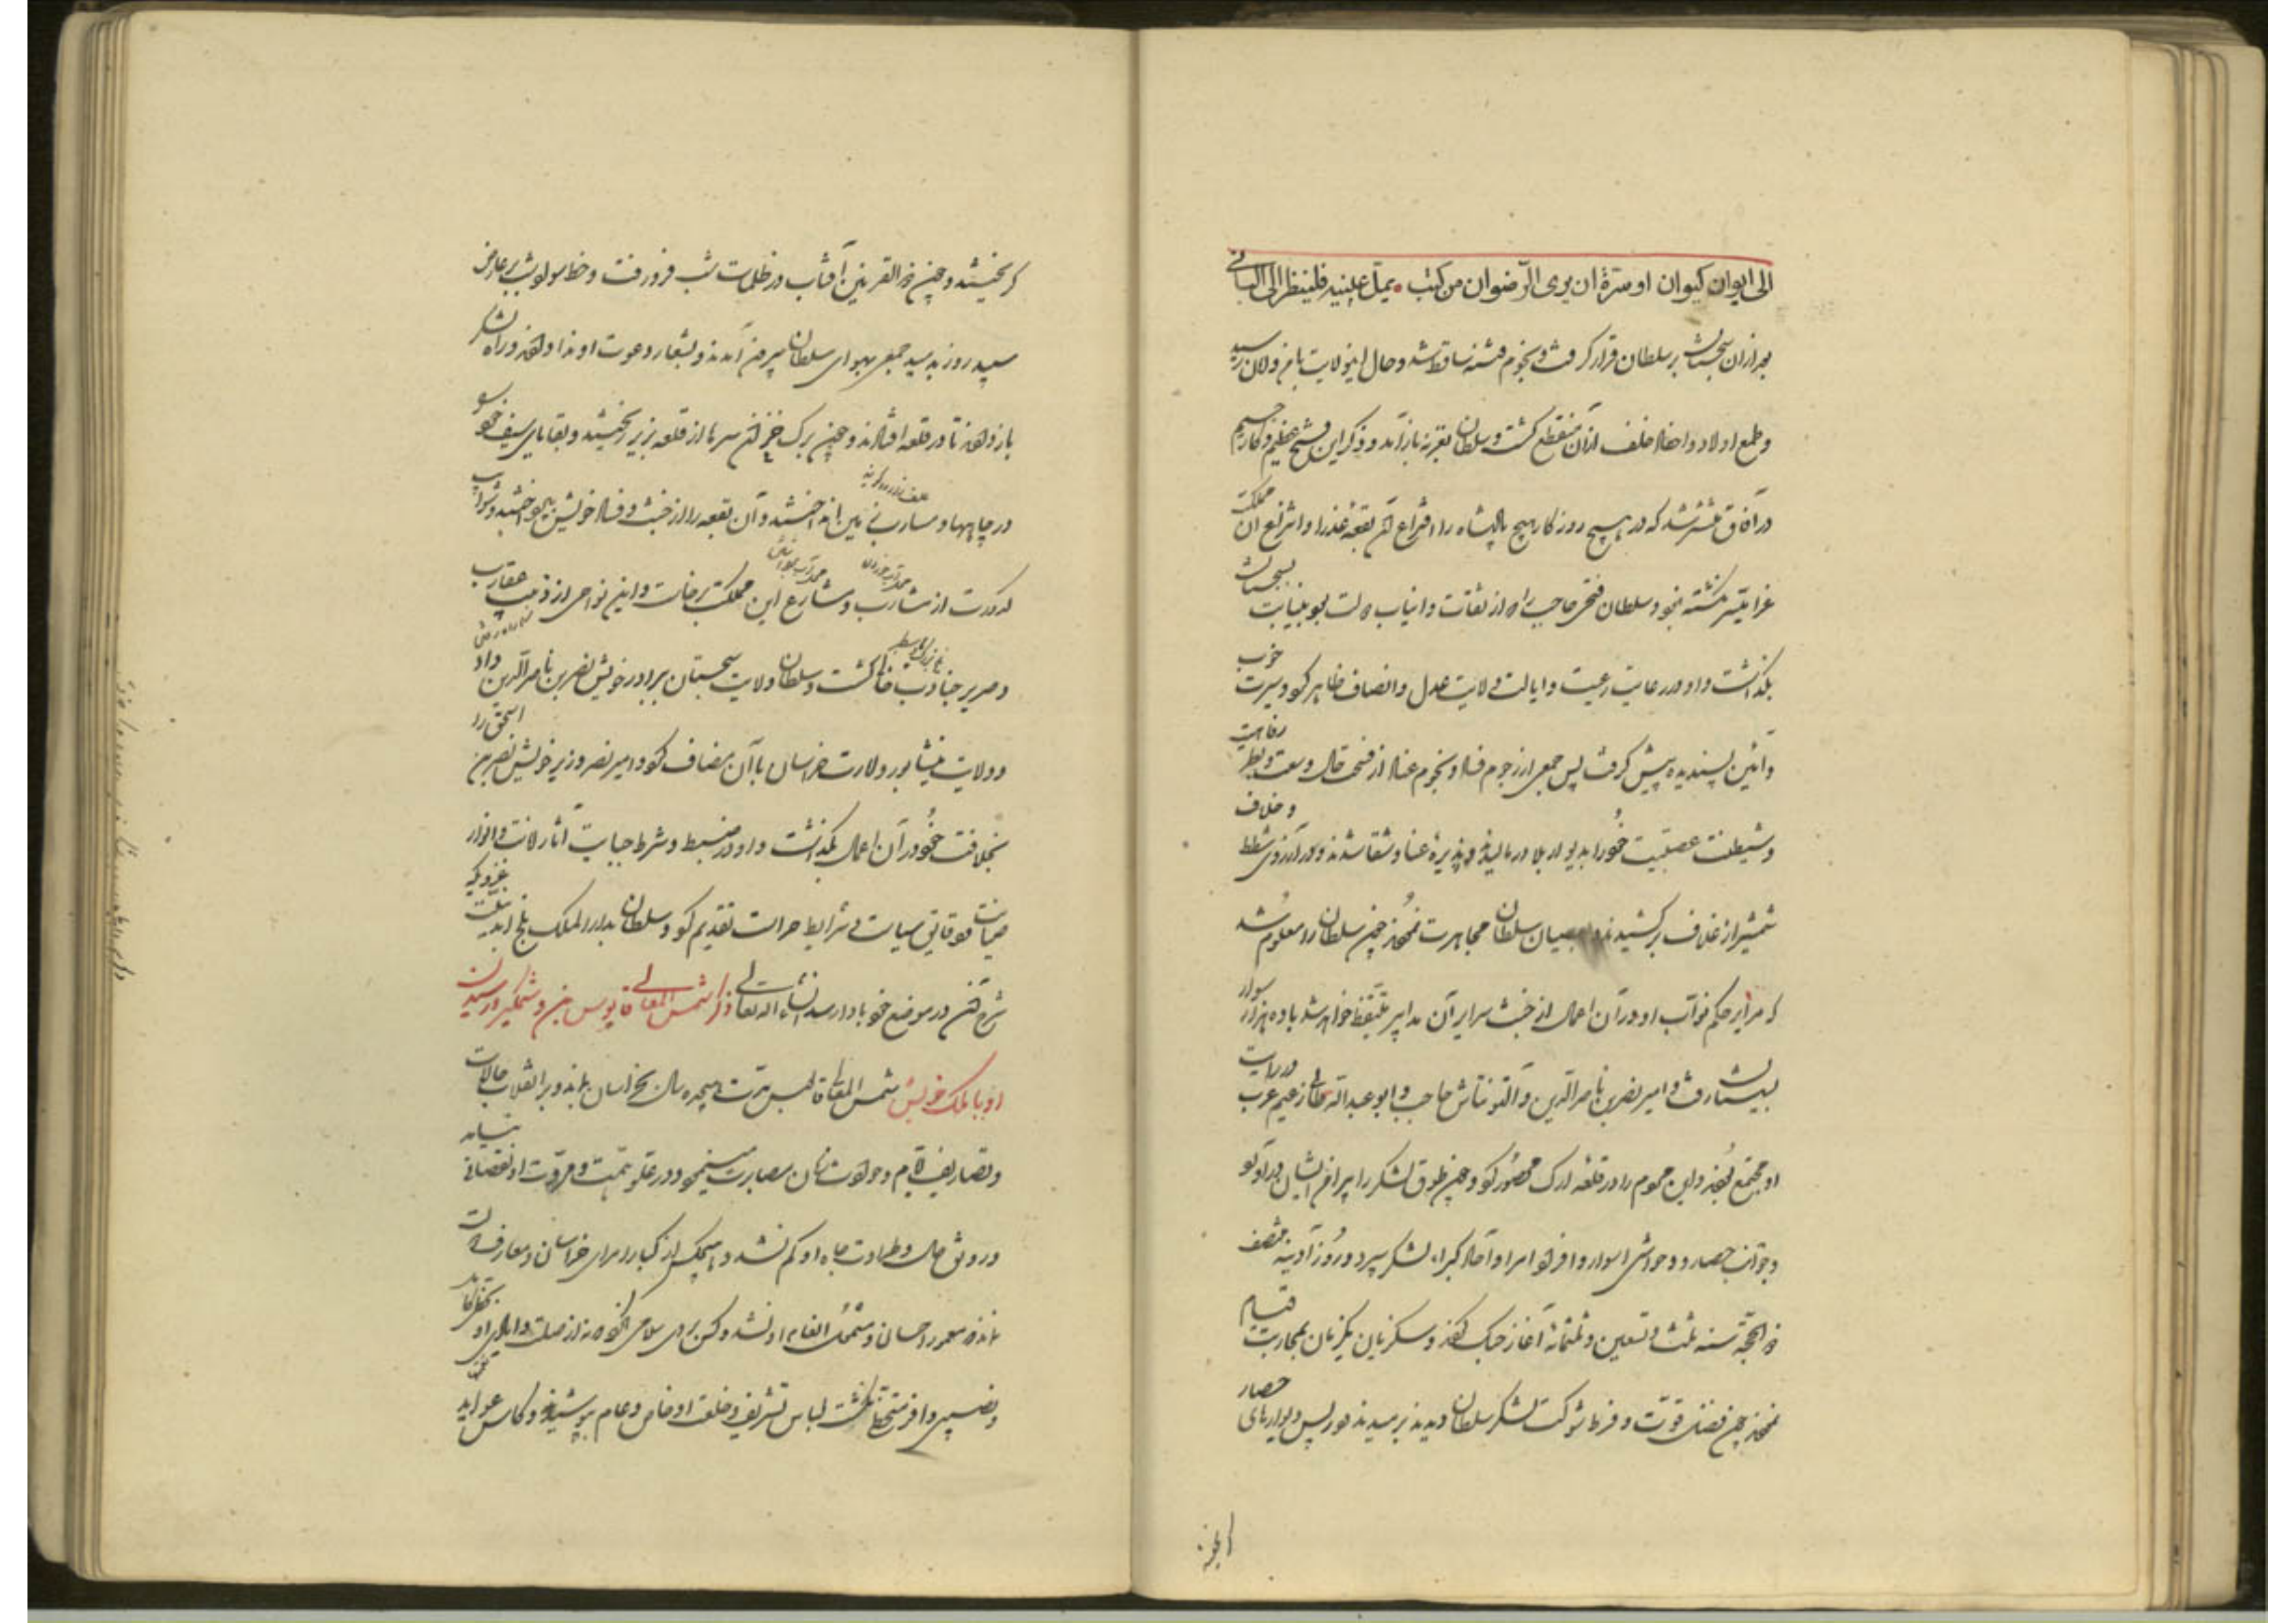 الی ایوان کیوان او سرّه ان یری الرّضوان من کثب • یملّ عینیه فلینظر الی البانی
بعد از آن سجستان بر سلطان قرار گرفت و نجوم فتنه ساقط شد و حال این ولایت بامن و لان رسید
و طمع اولاد و احفاد خلف از آن منقطع گشت و سلطان بغزنه باز آمد و ذکر این فتح عظیم و کار جسیم
در آفاق منتشر شد که در هیچ روزگار هیچ پادشاه را افتراع آن بقعه عذرا و انتزاع آن مملکت
غرا میسّر نگشته بود و سلطان فتحی حاجب را که از ثقات و انیاب دولت بود بنیابت بسجستان
بگذاشت و او در رعایت رعیت و ایالت ولایت عدل و انصاف ظاهر کرد و سیرت خوب
و آئین پسندیده پیش گرفت پس جمعی از رجوم فساد و نجوم عناد از فتحت حال و سعت و بطر رفاهیت
و شیطنت عصبیّت خود را بدیو از بلا در مالیدند و پذیره عنا و شقا شدند و در آرزوی شطط و خلاف
شمشیر از غلاف برکشیدند و بعصیان سلطان مجاهرت نمودند چون سلطان را معلوم شد
که مرایر حکم نوّاب او در آن اعمال از خبث سرایر آن مدابیر منتقض خواهد شد با ده هزار سوار
بسیستان رفت و امیر نصر بن ناصر الدین و آلتونتاش حاجب و ابو عبد الله طائی زعیم عرب در رایت
او مجتمع بودند و این جموم را در قلعه ارک محصور کرد و چون طوق لشکر را پیرامن ایشان در آورد
و جوانب حصار و حواشی اسوار و افراد امرا و آحاد کبراء لشکر سپرد و روز آدینه منتصف
ذی الحجّه سنه ثلث و تسعین و ثلثمائه آغاز جنگ کردند و سکزیان یکزمان بمحاربت قیام
نمودند چون فضل قوّت و فرط شوکت لشکر سلطان دیدند برمیدند و در پس دیوارهای حصار
گریختند و چون ذو القرنین آفتاب در ظلمات شب فرو رفت و خط سواد شب بر عارض
سپید روز بدمید جمعی بهوای سلطان بیرون آمدند و بشعار دعوت او ندا دادند و راه لشکر
باز دادند تا در قلعه افتادند و چون برگ خزان سرها از قلعه بزیر ریختند و بقایای سیف خود
در چاهها و مسارب زمین انداختند و آن بقعه را از خبث و فساد خویش بپرداختند و شوایب
کدورت از مشارب و مشارع این مملکت برخاست و این نواحی از ذبیب عقارب
و صریر جنادب خالی گشت و سلطان ولایت سجستان ببرادر خویش نصر بن ناصر الدین داد
و ولایت نیشابور و لارت خراسان با آن مضاف کرد و امیر نصر وزیر خویش نصر بن اسحق را
بخلافت خود در آن اعمال بگذاشت و او در ضبط و شرط جبایت آثار لانت و انوار
صیانت و دقایق سیاست و شرایط حراست تقدیم کرد و سلطان بدار الملک بلخ آمد
شرح آن در موضع خود یاد آرد ان شاء الله تعالی ذکر شمس المعالی قابوس بن وشمگیر و رسیدن
او با ملک خویش شمس المعالی قابوس مدّت هیجده سال بخراسان بماند و بر انقلاب حالات
و تصاریف ایّام و حوادث زمان مصابرت مینمود و در علوّ همّت و مروّت او نقصانی نیامد
و رونق حال و طراوت جاه او کم نشد و هیچکس از کبار امرای خراسان و معارف دولت
نماند که مغمور احسان و مشمول انعام او نشد و کس بر وی سلامی نکرد که نه از صلت و ایادی او
و نصیبی وافر متحظّی نگشت لباس تشریف و خلعت او خاص و عام بپوشیدند و کاس عواید